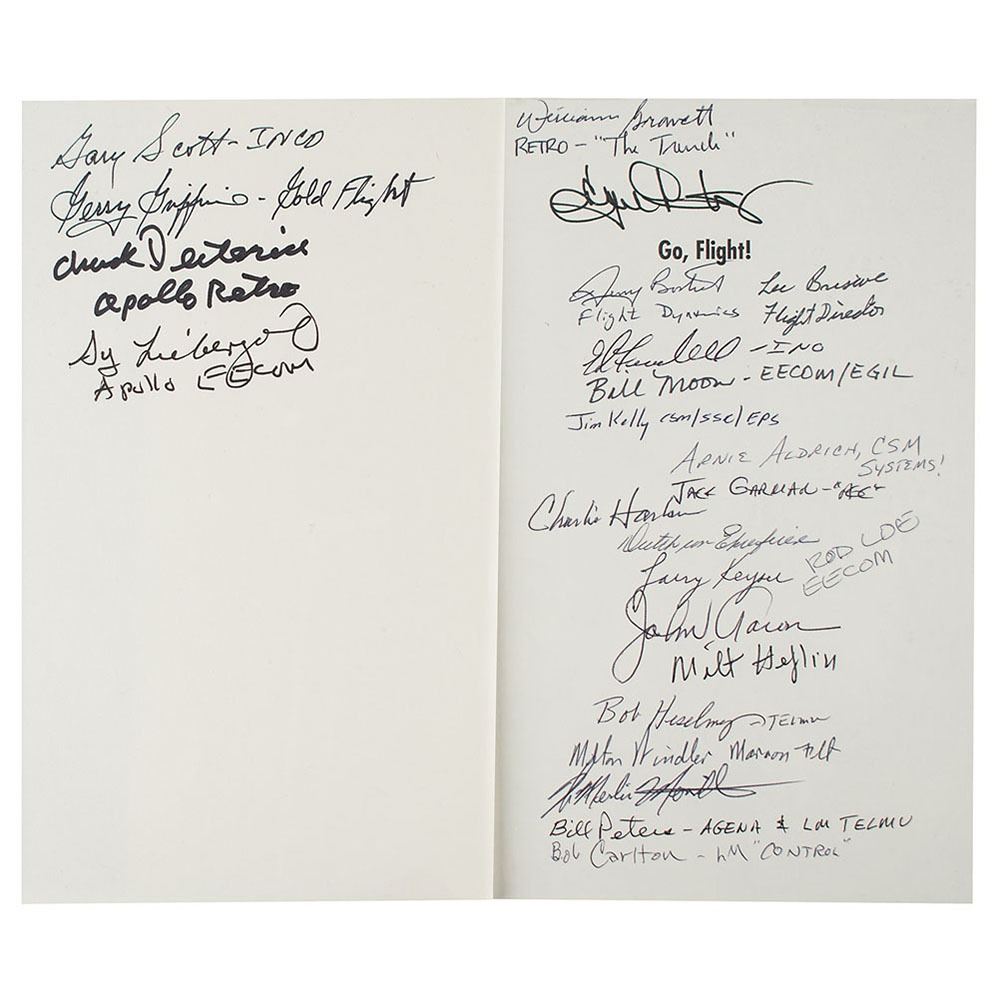 Gary Scott - INCO
Gerry Griffin - Gold Flight
Chuck Deiterich
Apollo Retro
Sy Liebergot
Apollo EECOM
William Gravett
RETRO - "The Trench"
Go, Flight!
Jerry Bostick Lee Briscoe
Flight Dynamics Flight Director
Ed Fendell - INO
Bill Moon - EECOM/EGIL
Jim Kelly CSM/SSR/EPS
ARNIE ALDRICH, CSM
SYSTEMS!
JACK GARMAN -
Charlie Harlan
Dutch von Ehrenfried
ROD LOE
Larry Keyser EECOM
John Aaron
Milt Heflin
Bob Heselmeyer - TELMU
Milton Windler Maroon Flt
Merlin Merritt
Bill Peters - AGENA & LM TELMU
Bob Carlton - LM "CONTROL"